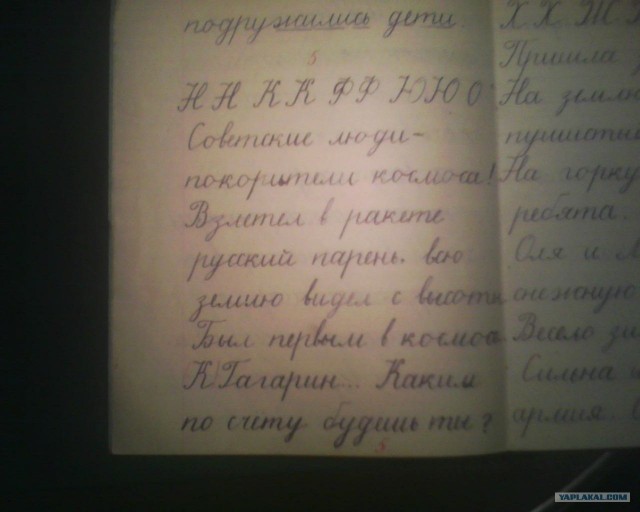 подружились дети.
5
Н Н К К Ф Ф Ю Ю О
Советские люди-
покорители космоса!
Взлетел в ракете
руский парень. всю
землю видел с высоты
Был первым в космос
К Гагарин... Каким
по счету будишь ты?
5
Х Х Ж
Пришла
На землю
пушистый
На горку
ребята.
Оля и
снежную
Весело
Сильна
армия.
YAPLAKAL.COM